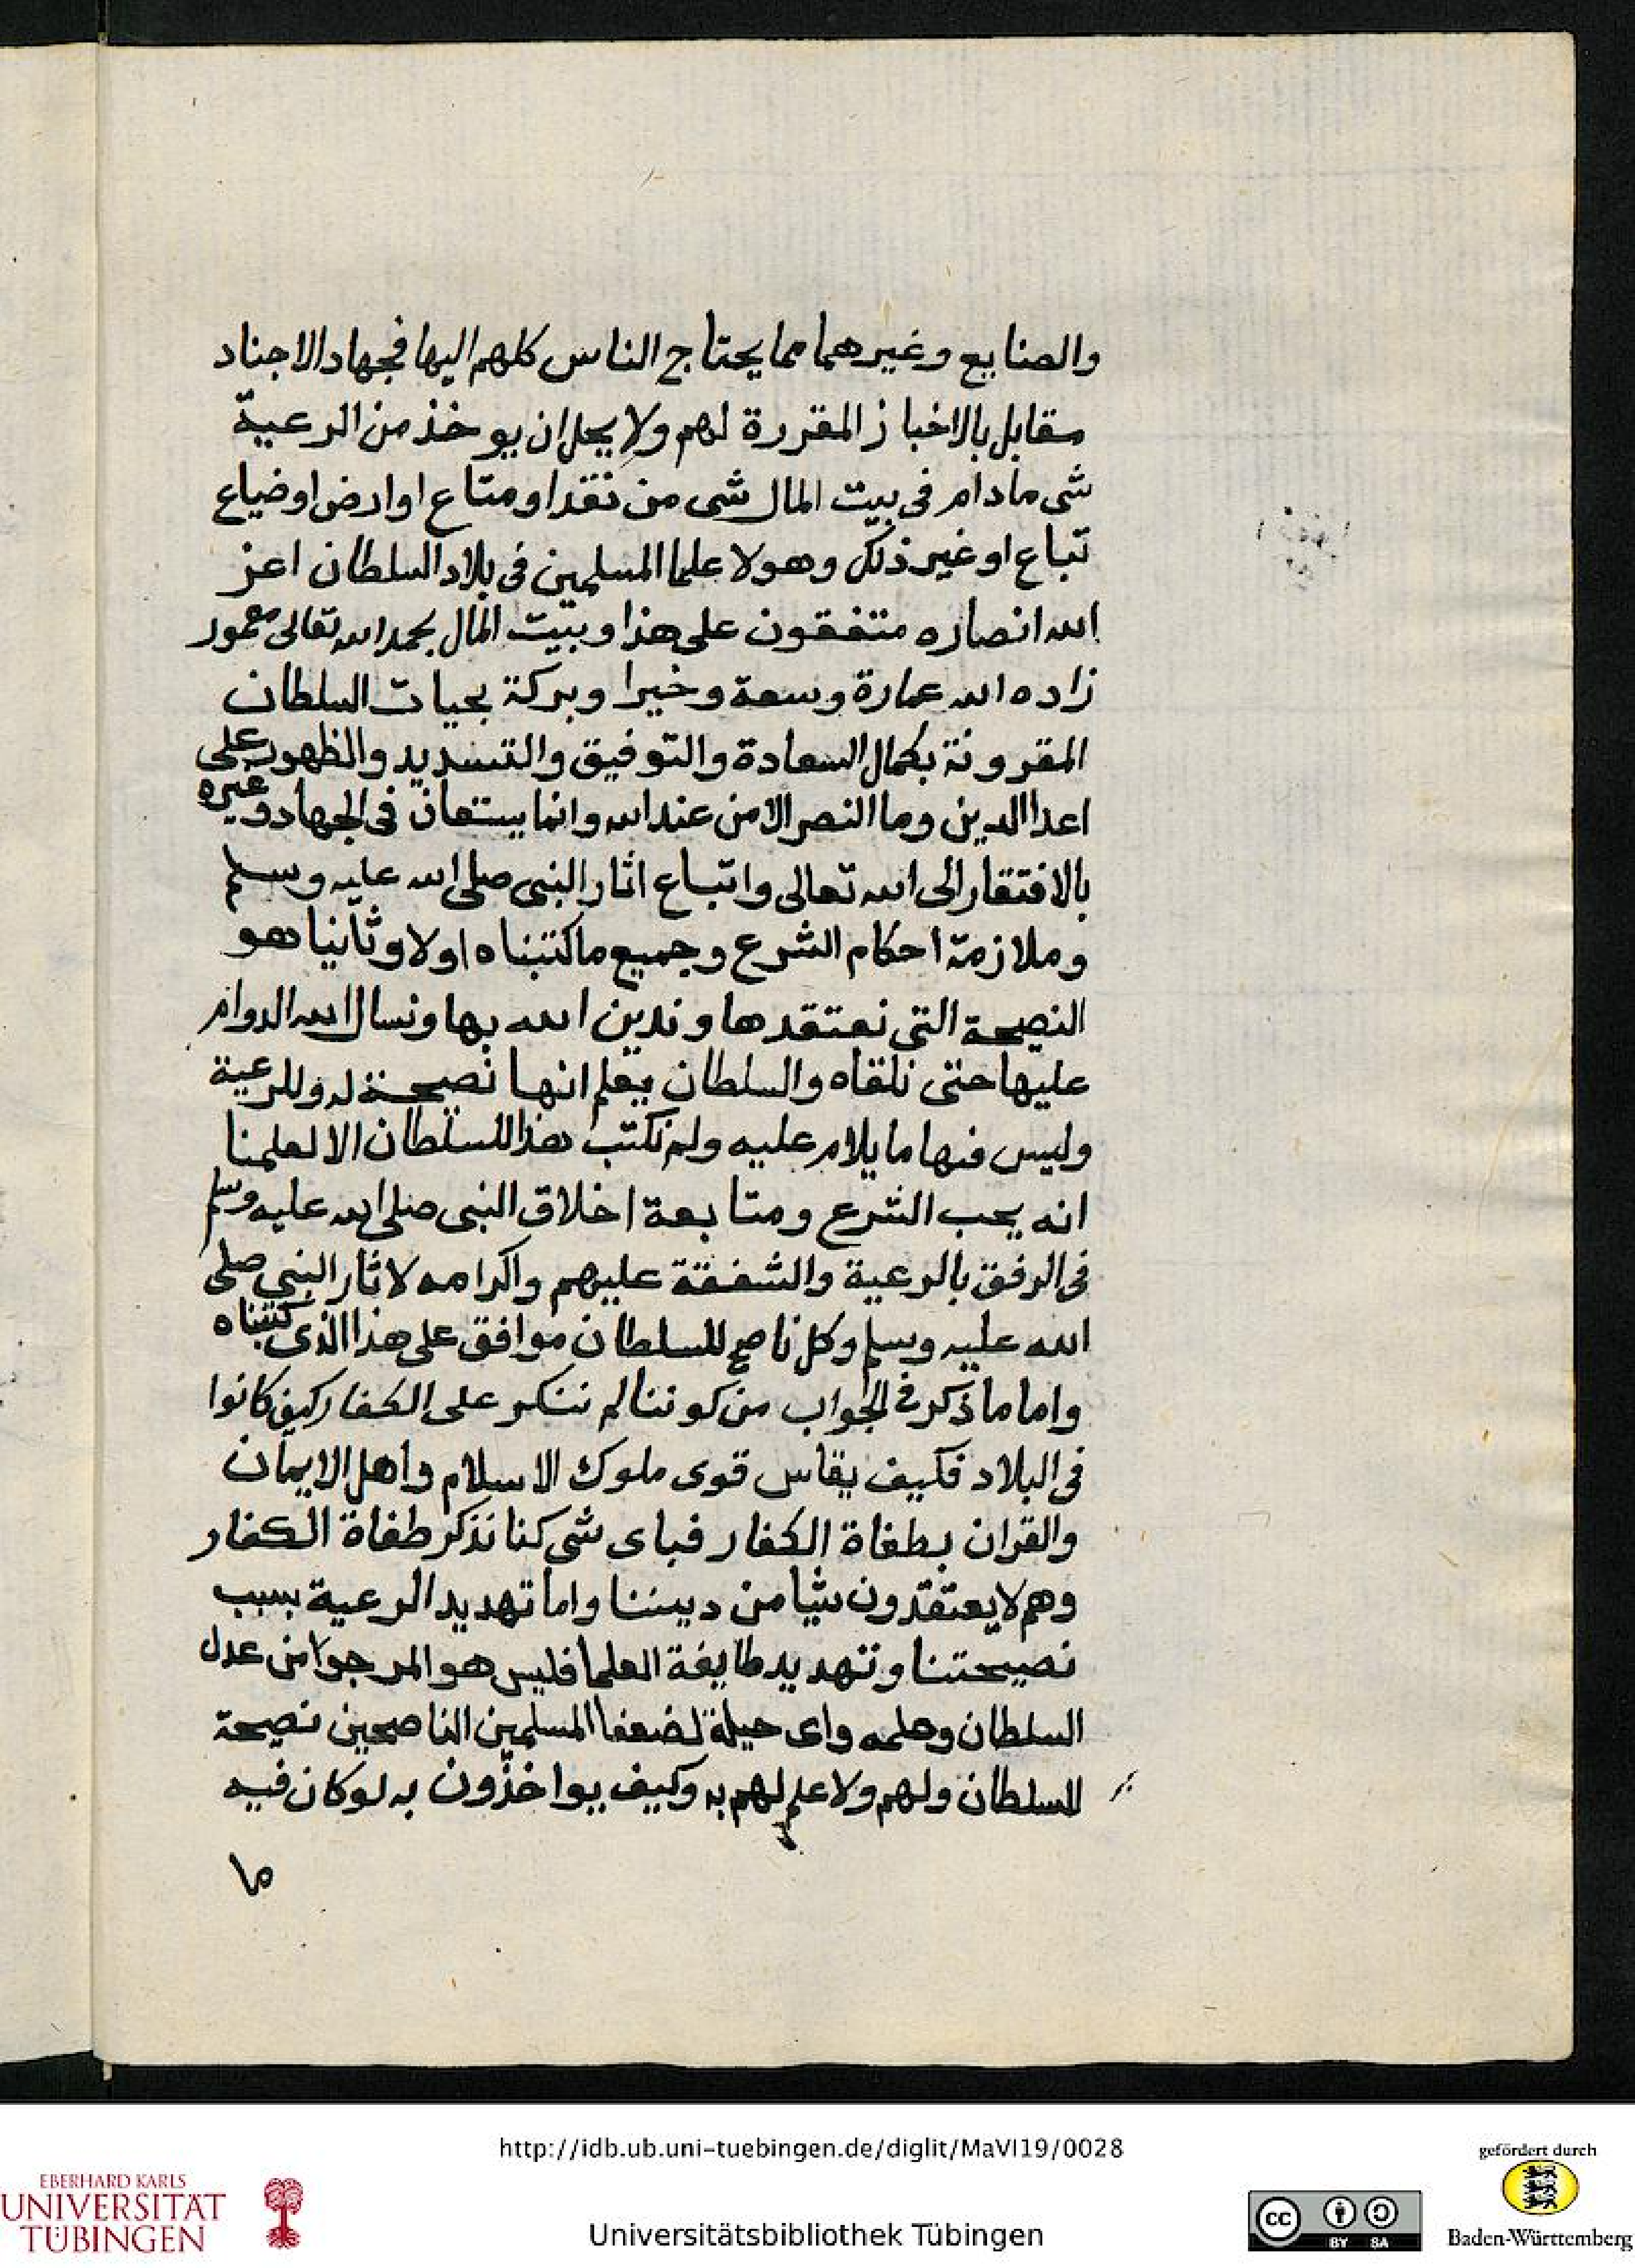 والصنايع وغيرهما مما يحتاج الناس كلهم اليها فجهاد الاجناد
مقابل بالاخباز المقررة لهم ولا يحل ان يوخذ من الرعية
شى مادام فى بيت المال شى من نقد او متاع او ارض او ضياع
تباع او غير ذلك وهولا علما المسلمين فى بلاد السلطان اعز
الله انصاره متفقون على هذا وبيت المال بحمد الله تعالى معمور
زاده الله عمارة وسعة وخيرا وبركة بحيات السلطان
المقرونة بكمال السعادة والتوفيق والتسديد والظهور على
اعدا الدين وما النصر الا من عند الله وانما يستعان فى الجهاد وغيره
بالافتقار الى الله تعالى واتباع اثار النبى صلى الله عليه وسلم
وملازمة احكام الشرع وجميع ما كتبناه اولا وثانيا هو
النصيحة التى نعتقدها وندين الله بها ونسال الله الدوام
عليها حتى نلقاه والسلطان يعلم انها نصيحة له وللرعية
وليس فيها ما يلام عليه ولم نكتب هذا للسلطان الا لعلمنا
انه يحب الشرع ومتابعة اخلاق النبى صلى الله عليه وسلم
فى الرفق بالرعية والشفقة عليهم واكرامه لاثار النبي صلى
الله عليه وسلم وكل ناصح للسلطان موافق على هذا الذى كتبناه
واما ما ذكر فى الجواب من كوننا لم ننكر على الكفار كيف كانوا
فى البلاد فكيف يقاس قوى ملوك الاسلام واهل الايمان
والقران بطغاة الكفار فباى شى كنا نذكر طغاة الكفار
وهم لا يعتقدون شيا من ديننا واما تهديد الرعية بسبب
نصيحتنا وتهديد طايفة العلما فليس هو المرجوا من عدل
السلطان وحلمه واى حيلة لضعفا المسلمين الناصحين نصيحة
للسلطان ولهم ولا علم لهم به وكيف يواخذون به لو كان فيه
ما
http://idb.ub.uni-tuebingen.de/diglit/MaVI19/0028
Universitätsbibliothek Tübingen
EBERHARD KARLS
UNIVERSITÄT
TÜBINGEN
cc BY SA
gefördert durch
Baden-Württemberg